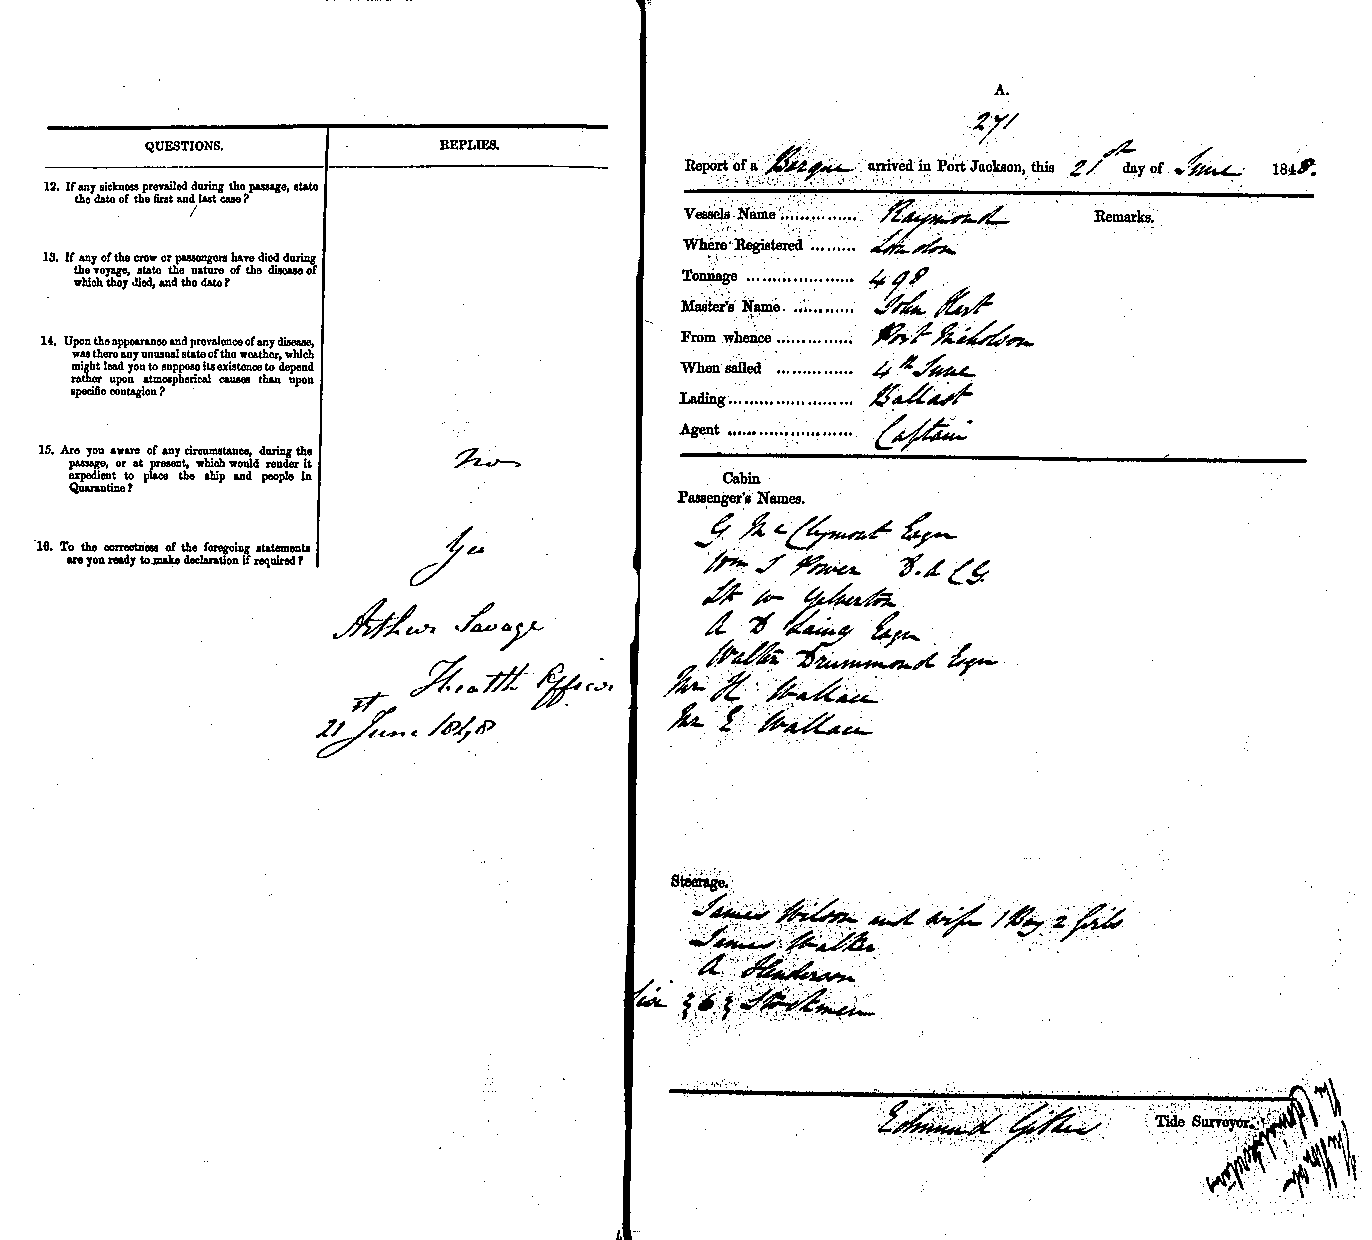 QUESTIONS.
REPLIES.
12. If any sickness prevailed during the passage, state
the date of the first and last case?
13. If any of the crew or passengers have died during
the voyage, state the nature of the disease of
which they died, and the date?
14. Upon the appearance and prevalence of any disease,
was there any unusual state of the weather, which
might lead you to suppose its existence to depend
rather upon atmospherical causes than upon
specific contagion?
15. Are you aware of any circumstance, during the
passage, or at present, which would render it
expedient to place the ship and people in
Quarantine?
No
16. To the correctness of the foregoing statements
are you ready to make declaration if required?
Yes
Arthur Savage
Health Officer
21st June 1848
A.
271
Report of a Barque arrived in Port Jackson, this 21st day of June 1848.
Vessels Name ............... Raymond
Remarks.
Where Registered ......... London
Tonnage ..................... 498
Master's Name ............ John Hart
From whence ............... Port Nicholson
When sailed ............... 4th June
Lading........................ Ballast
Agent ........................ Captain
Cabin
Passenger's Names.
G McClymont Esqr
Wm J Power D.A.C.G.
Lt W Yelverton
A D Laing Esqr
Walter Drummond Esqr
Mr H Wallace
Mr E Wallace
Steerage.
James Wilson and wife 1 Boy 2 Girls
James Walker
A Henderson
Six {6} Stockmen
Edmund Gibbes
Tide Surveyor.